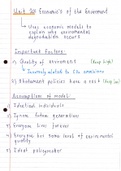 Unit 20 Economics of the Environment
↳ Uses economic models to
explain why environmental
degradation occurs
Important Factors:
1) Quality of environment (keep high)
↳ Inversely related to the emissions
2) Abatement policies have a cost (keep low)
Assumption of model:
1) Identical individuals
2) Ignore future generations
3) Everyone has same level of environmental
quality
4) Ideal policymaker